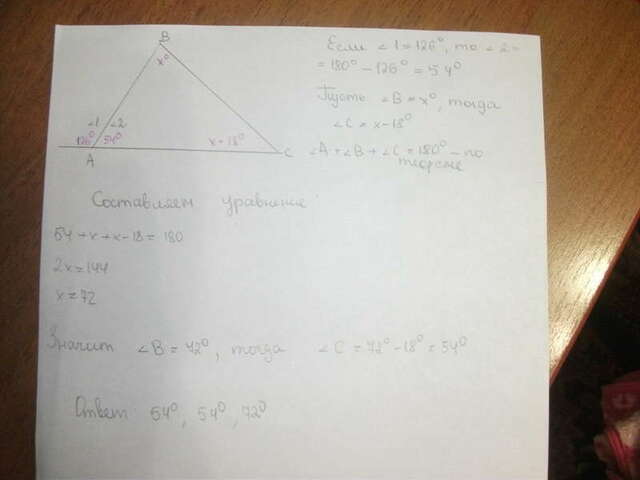 B
x°
∠1 ∠2
126° 54°
x - 18°
A
C
Если ∠1 = 126°, то ∠2 =
= 180° - 126° = 54°
Пусть ∠B = x°, тогда
∠C = x - 18°
∠A + ∠B + ∠C = 180° - по
теореме
Составляем уравнение
54 + x + x - 18 = 180
2x = 144
x = 72
Значит ∠B = 72°, тогда ∠C = 72° - 18° = 54°
Ответ 54°, 54°, 72°